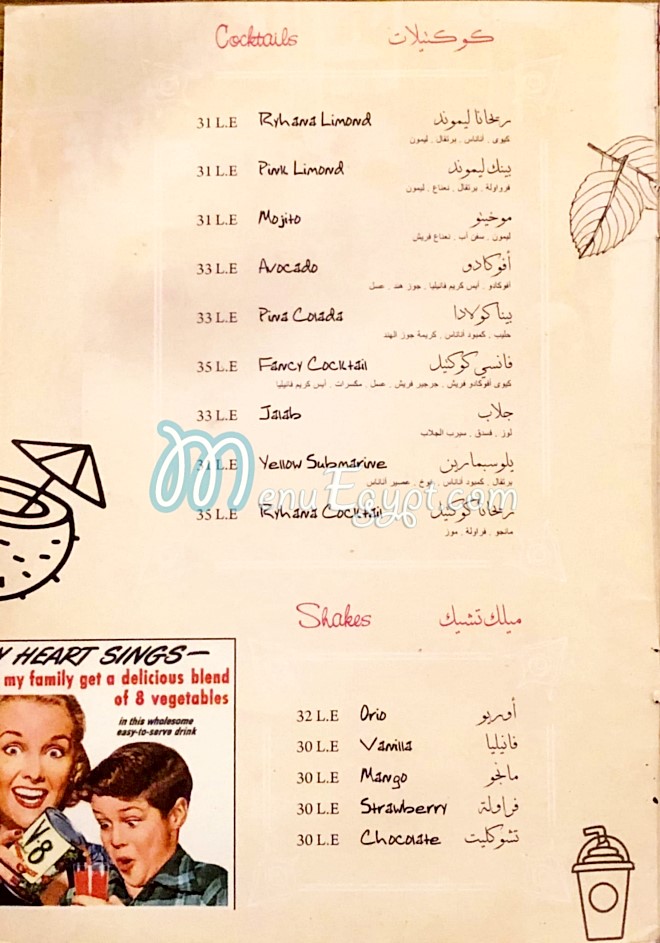 Cocktails كوكتيلات
31 L.E Ryhana Limond ريحانا ليموند
كيوى . أناناس . برتقال . ليمون
31 L.E Pink Limond بينك ليموند
فرواولة . برتقال . نعناع . ليمون
31 L.E Mojito موخيتو
ليمون . سفن أب . نعناع فريش
33 L.E Avocado أفوكادو
أفوكادو . أيس كريم فانيليا . جوز هند . عسل
33 L.E Pina Colada بينا كولادا
حليب . كمبود أناناس . كريمة جوز الهند
35 L.E Fancy Cocktail فانسي كوكتيل
كيوى أفوكادو فريش . جرجير فريش . عسل . مكسرات . أيس كريم فانيليا
33 L.E Jalab جلاب
لوز . فسدق . سيرب الجلاب
31 L.E Yellow Submarine يلوسبمارين
برتقال . كمبود أناناس . خوخ . عصير أناناس
MenuEgypt.com
35 L.E Ryhana Cocktail ريحانا كوكتيل
مانجو . فراولة . موز
Shakes ميلك تشيك
Y HEART SINGS—
my family get a delicious blend
of 8 vegetables
in this wholesome
easy-to-serve drink
V-8
32 L.E Orio أوريو
30 L.E Vanilla فانيليا
30 L.E Mango مانجو
30 L.E Strawberry فراولة
30 L.E Chocolate تشوكليت